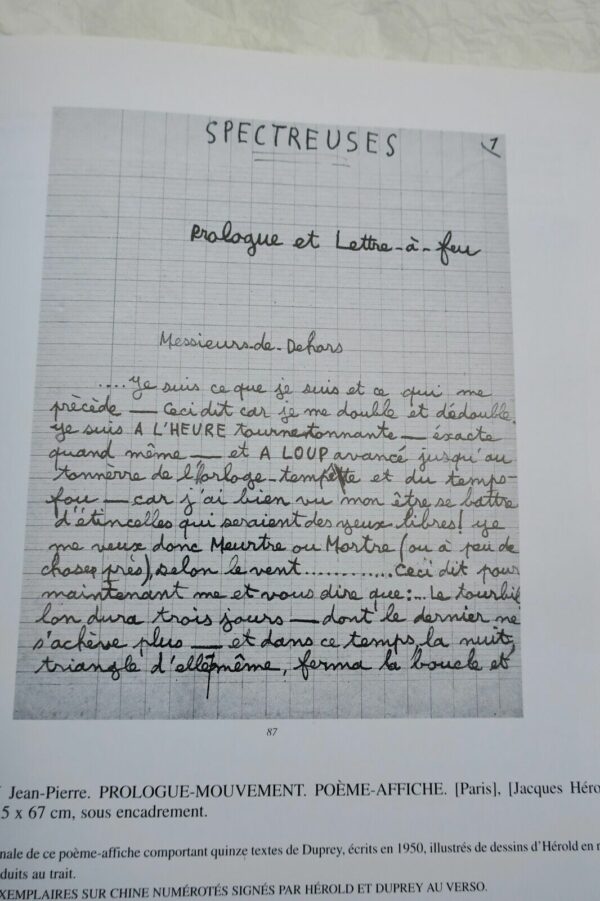 SPECTREUSES
1
Prologue et Lettre-à-feu
Messieurs-de-Dehors
....Je suis ce que je suis et ce qui me
précède — Ceci dit car je me double et dédouble.
Je suis A L'HEURE tournetonnante — éxacte
quand même — et A LOUP avancé jusqu'au
tonnèrre de l'horloge-tempête et du temps-
fou — car j'ai bien vu mon être se battre
d'étincelles qui seraient des yeux libres! Je
me veux donc Meurtre ou Mortre (ou à peu de
choses près), selon le vent............Ceci dit pour
maintenant me et vous dire que:... Le tourbil
lon dura trois jours — dont le dernier ne
s'achève plus — et dans ce temps, la nuit,
triangle d'elle même, ferma la boucle et
87
Jean-Pierre. PROLOGUE-MOUVEMENT. POÈME-AFFICHE. [Paris], [Jacques Héro
5 x 67 cm, sous encadrement.
nale de ce poème-affiche comportant quinze textes de Duprey, écrits en 1950, illustrés de dessins d'Hérold en
duits au trait.
XEMPLAIRES SUR CHINE NUMÉROTÉS SIGNÉS PAR HÉROLD ET DUPREY AU VERSO.